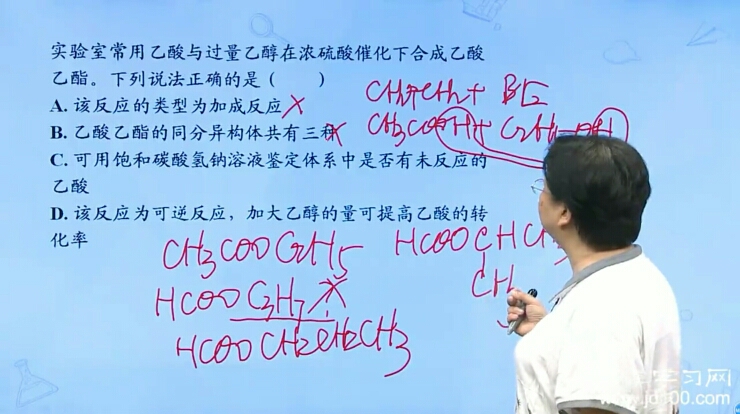 实验室常用乙酸与过量乙醇在浓硫酸催化下合成乙酸
乙酯。下列说法正确的是（　　）
A. 该反应的类型为加成反应 ×
B. 乙酸乙酯的同分异构体共有三种 ×
C. 可用饱和碳酸氢钠溶液鉴定体系中是否有未反应的
乙酸
D. 该反应为可逆反应，加大乙醇的量可提高乙酸的转
化率
CH₃COOH + C₂H₅-OH
CH₃COOC₂H₅
HCOOC₃H₇
HCOOCH₂CH₂CH₃
HCOOCHCH₃
学习网